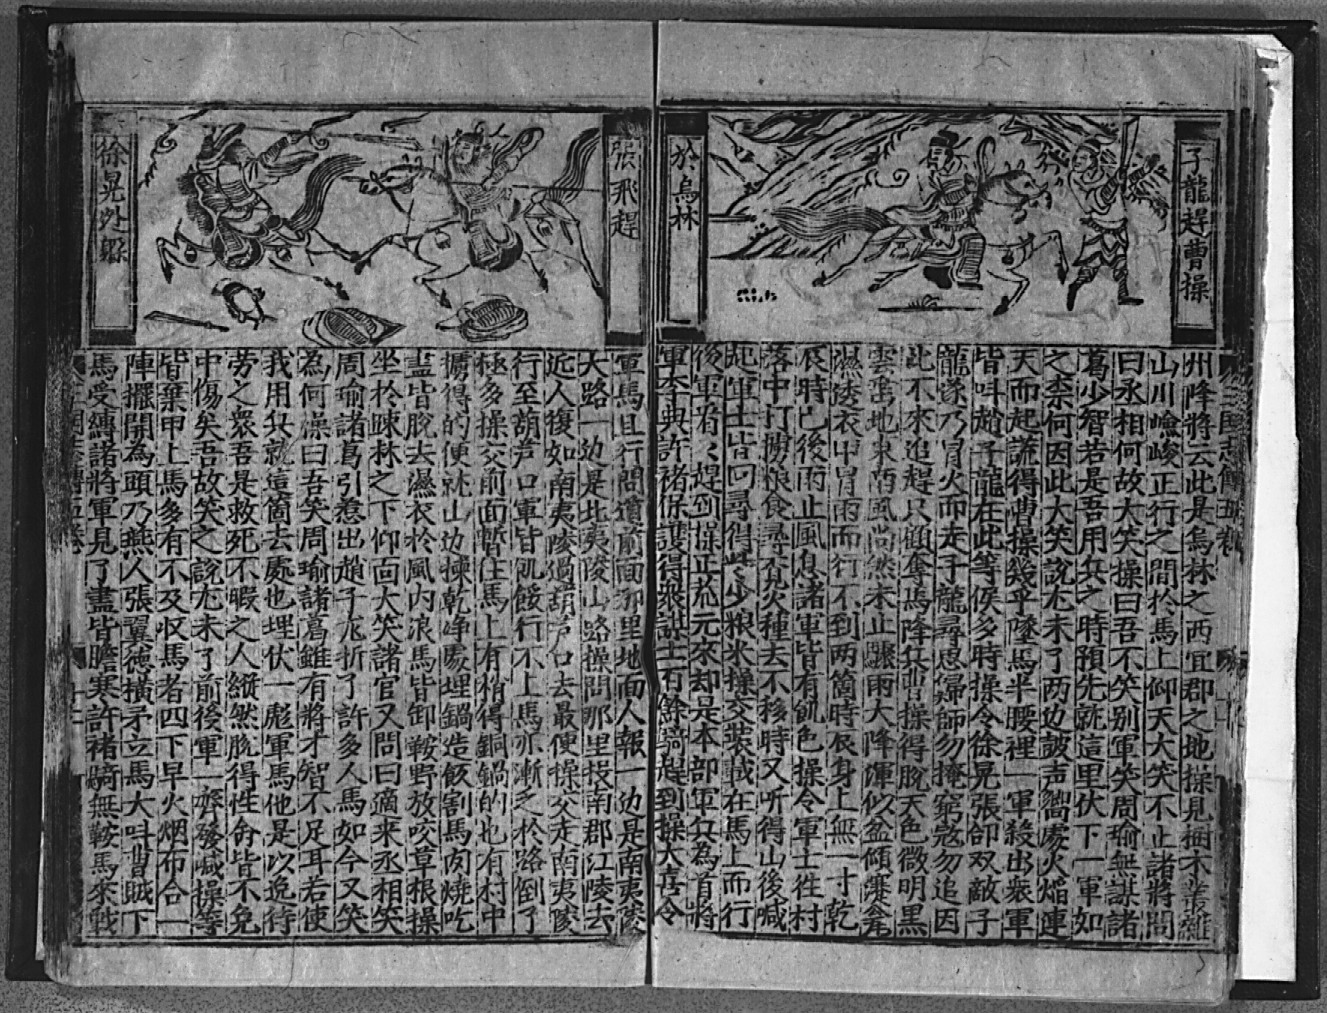 子龍趕曹操
於烏林
州降將云此是烏林之西宜郡之地操見樹木叢雜
山川嶮峻正行之間於馬上仰天大笑不止諸將問
曰丞相何故大笑操曰吾不笑别軍笑周瑜無謀諸
葛少智若是吾用兵之時預先就這里伏下一軍如
之柰何因此大笑說尤未了两边皷声嚮處火熖連
天而起諕得曹操幾乎墜馬半腰裡一軍殺出衆軍
皆叫趙子龍在此等候多時操令徐晃張郃双敵子
龍遂乃冒火而走子龍尋思歸師勿掩窮寇勿追因
此不來追趕只顧奪馬降兵曹操得脫天色微明黑
雲罩地東南風尚然未止驟雨大降渾似盆傾
濕透衣甲冒雨而行不到两箇時辰身上無一寸乾
辰時已後雨止風息諸軍皆有飢色操令軍士徃村
落中打擄粮食尋覔火種去不移時又听得山後喊
起軍士皆回尋得些少粮米操交装載在馬上而行
後軍看看趕到操正荒元來却是本部軍兵為首將
軍李典許褚保護得衆謀士百餘騎趕到操大喜令
張飛趕
徐晃外縣
軍馬且行問道前面那里地面人報一边是南夷陵
大路一边是北夷陵山路操問那里投南郡江陵去
近人復如南夷陵過葫芦口去最便操交走南夷陵
行至葫芦口軍皆飢餒行不上馬亦漸乏於路倒了
極多操交前面暫住馬上有稍得銅鍋的也有村中
擄得的便就山边揀乾净處埋鍋造飯割馬肉燒吃
盡皆脫去濕衣於風内浪馬皆卸鞍野放咬草根操
坐於踈林之下仰面大笑諸官又問曰適來丞相笑
周瑜諸葛引惹出趙子龙折了許多人馬如今又笑
為何操曰吾笑周瑜諸葛雖有將才智不足耳若使
我用兵就這箇去處也埋伏一彪軍馬他是以逸待
劳之衆吾是救死不暇之人縱然脫得性命皆不免
中傷矣吾故笑之說尤未了前後軍一齊發喊操等
皆棄甲上馬多有不及収馬者四下早火烟布合一
陣擺開為頭乃燕人張翼德横矛立馬大叫曹賊下
馬受縛諸將軍見了盡皆膽寒許褚騎無鞍馬來戰